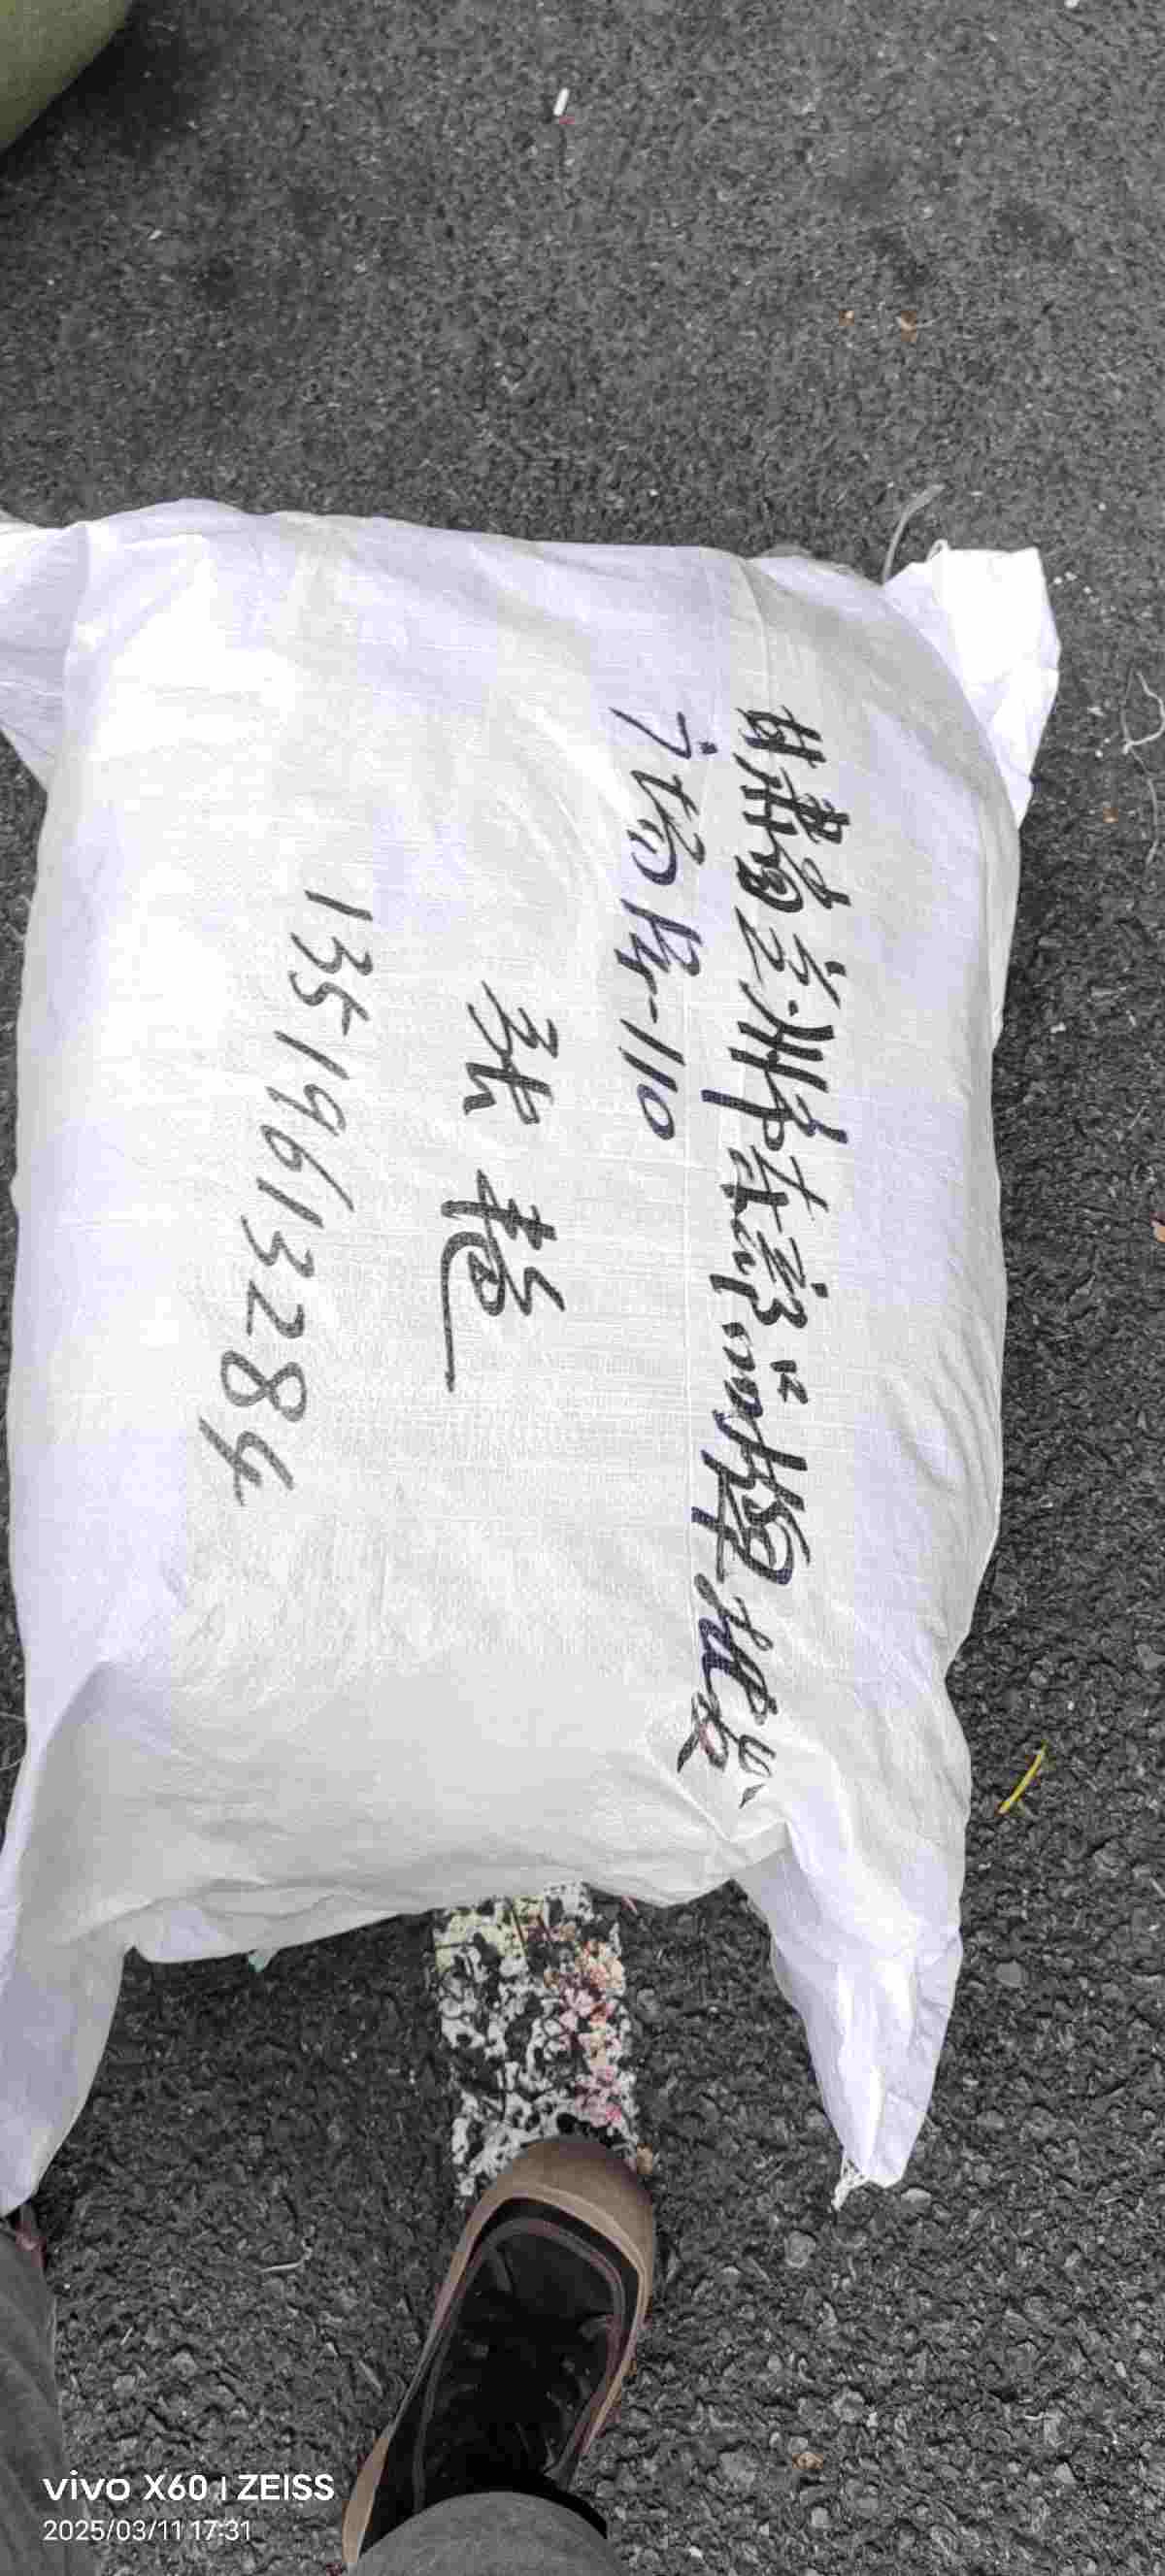 甘肃省兰州市东部品牌批发
广场2F-110
张艳
13519613284
vivo X60 | ZEISS
2025/03/11 17:31